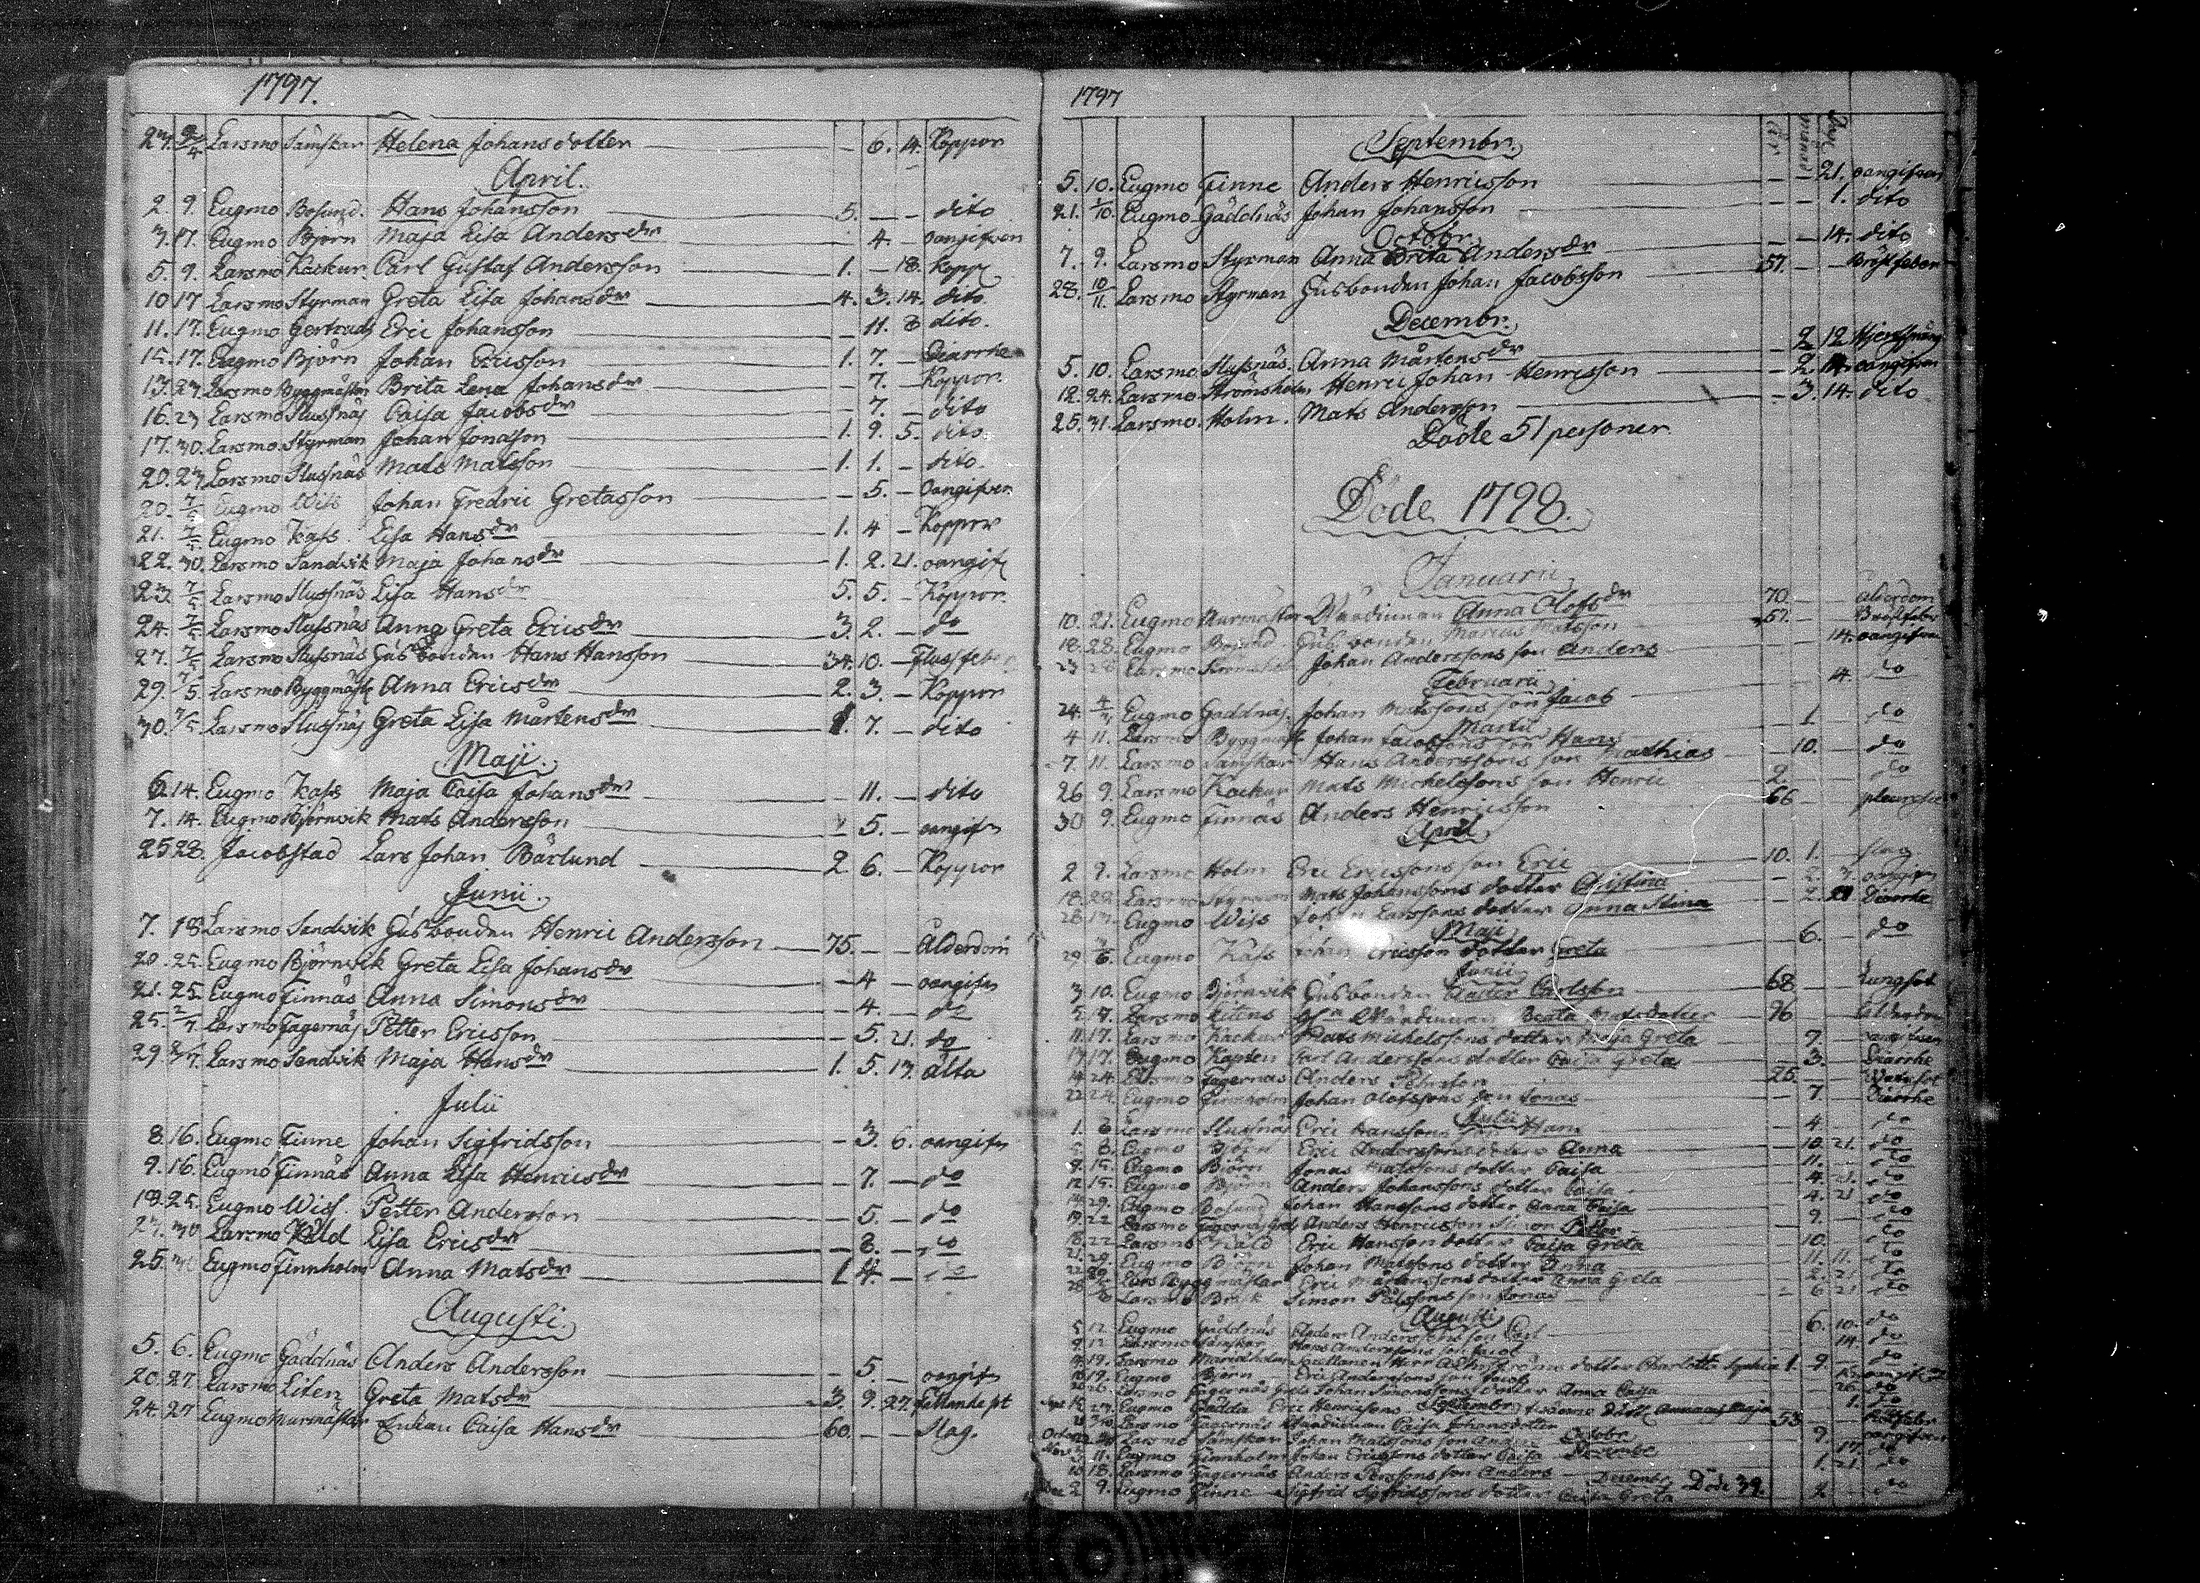 1797.
27. 2/4 Larsmo Sämskar Helena Johansdotter — 6. 14. Koppor
April.
2. 9. Eugmo Bosund. Hans Johansson 5. — — dito
3. 17. Eugmo Björn Maja Lisa Andersdr 4. — oangifven
5. 9. Larsmo Kackur Carl Gustaf Andersson 1. — 18. Kopp
10 17 Larsmo Styrman Greta Lisa Johansdr 4. 3. 14. dito
11. 17. Eugmo Gertruds Eric Johansson — 11. 8 dito.
15. 17. Eugmo Björn Johan Ericsson 1. 7. — Diarrhe
13. 23. Larsmo Byggmästar Brita Lena Johansdr — 7. — Koppor.
16. 23 Larsmo Slussnäs Caisa Jacobsdr — 7. — dito
17. 30. Larsmo Styrman Johan Jonasson 1. 9. 5. dito
20. 23 Larsmo Slussnäs Mats Matsson 1. 1. — dito.
20. 7/5 Eugmo Wiss Johan Fredric Gretasson — 5. — Oangifven
21. 7/5 Eugmo Kass Lisa Hansdr 1. 4 — Koppor
22. 30. Larsmo Sandvik Maja Johansdr 1. 2. 21. oangif
23. 7/5 Larsmo Slussnäs Lisa Hansdr 5. 5. — Koppor.
24. 7/5 Larsmo Slussnäs Anna Greta Ericsdr 3. 2. — do
27. 7/5 Larsmo Slussnäs Gusbonden Hans Hansson 34. 10. — Flussfeber
29. 7/5 Larsmo Byggmäst Anna Ericsdr 2. 3. — Koppor
30. 7/5 Larsmo Slussnäs Greta Lisa Mårtensdr 1. 7. — dito
Maji.
6. 14. Eugmo Kass Maja Caisa Johansdr — 11. — dito
7. 14. Eugmo Björnvik Mats Andersson — 5. — oangifn
25 28. Jacobstad Lars Johan Bärlund 2 6. — Koppor
Junii.
7. 18 Larsmo Sandvik Gusbonden Henric Andersson 75. — — Ålderdom
20. 25. Eugmo Björnvik Greta Lisa Johansdr — 4 — oangifn
21. 25. Eugmo Finnäs Anna Simonsdr — 4. — do
25. 2/7 Larsmo Fagernäs Petter Ericsson — 5. 21. do
29 2/7. Larsmo Sandvik Maja Hansdr 1. 5. 13. älta
Julii
8. 16. Eugmo Finne Johan Sigfridsson — 3. 6. oangifn
9. 16. Eugmo Finnäs Anna Lisa Henricsdr — 7. — do
18. 25. Eugmo Wiss. Petter Andersson — 5. — do
27. 30 Larsmo Käld Lisa Ericsdr — 8. — do
25. 30 Eugmo Finnholm Anna Matsdr 1 4. — do
Augusti.
5. 6. Eugmo Gäddnäs Anders Andersson — 5. — oangifn
20. 27 Larsmo Liten Greta Matsdr 3. 9. 27.
24. 27 Eugmo Murmästar Enkan Caisa Hansdr 60. — — Slag.
1797
År månad Dag
Septembr.
5. 10. Eugmo Finne Anders Henricsson — — 21. oangifven
21. 1/10. Eugmo Gäddnäs Johan Johansson — — 1. dito
Octobr.
7. 9. Larsmo Styrman Anna Brita Andersdr — — 14. dito
28. 10/11 Larsmo Styrman Gusbonden Johan Jacobsson 57. — — Bröstfeber
Decembr.
5. 10. Larsmo Slussnäs. Anna Mårtensdr — 2 12
12. 24. Larsmo Strömsholm Henric Johan Henricsson — 2. 14. oangifven
25. 31. Larsmo Holm. Mats Andersson — 3. 14. dito
Döde 51 personer.
Döde 1798.
Januarii
10. 21. Eugmo Murmästar Wärdinnan Anna Olofsdr 70. — — ålderdom
18. 28. Eugmo Bosund Gusbonden Matsson 57. — — Bröstfeber
23 28 Larsmo Johan Anderssons son Anders 14. oangifven
Februarii
24. 4/3 Eugmo Gäddnäs. Johan Matssons son Jacob 4. do
Martii
4 11. Larsmo Byggmäst Johan Jacobssons son Hans — 1 — do
7. 11. Larsmo Sämskar Hans Anderssons son Mathias — 10. — do
26 9 Larsmo Kackur Mats Michelssons son Henric 2. — — do
30 9. Eugmo Finnäs Anders Henricsson 66 — —
April
2 9. Larsmo Holm Eric Ericssons son Eric 10. 1. — slag
18. 22. Larsmo Styrman Mats Johanssons dotter Christina oangifn
28. 13. Eugmo Wiss Johan Larssons dotter Anna Stina — 2. 21 Diarrhe
Maji
29 Eugmo Kass Johan Ericsson dotter Greta — 6. — do
Junii
3 10. Eugmo Björnvik Gusbonden Carlsson 68 — — Lungsot
5 17. Larsmo Litens Wärdinnan Beata Matsdotter 76 — — ålderdom
11. 17. Larsmo Kackur Mats Michelssons dotter Maja Greta 9. — oangifven
17 17. Eugmo Kapten Carl Anderssons dotter Caisa Greta — 3. — Diarrhe
14 24. Larsmo Fagernäs Anders Pehrsson 25. — —
22 24. Eugmo Finnholm Johan Olofssons son Jonas — 7 — Diarrhe
Julii
1. 8 Larsmo Slussnäs Eric Hanssons son Hans — 4. — do
8. Eugmo Björn Eric Anderssons dotter Anna 10. 21. do
9. 15. Eugmo Björn Jonas Matssons dotter Caisa 11. — do
12 15. Eugmo Björn Anders Johanssons dotter Caisa 4. 21. do
29. Eugmo Bosund Johan Hanssons dotter Anna Caisa 4. 21 do
19. 22 Larsmo Anders Henricsson 9. — do
18. 22 Larsmo Käld Eric Hansson dotter Caisa Greta 10. — do
21. 29. Eugmo Björn Johan Matssons dotter Anna 11. 11. do
Lars Byggmästar Eric Mårtenssons dotter Anna Greta 2. 21. do
28 Larsmo Bräk Simon Pålssons son Jonas 6 21 do
Augusti
5 12. Eugmo Gäddnäs Anders Anderssons son Carl 6. 10. do
9 12. Larsmo Sämskar Hans Anderssons son Jacob 14. do
19. Larsmo Mariæholm dotter Charlotta Sophia 1. 9. — do
19. Eugmo Björn Eric Anderssons son Jacob
26. Larsmo Fagernäs Johan Simonssons dotter Anna Caisa 26. do
Septembr
Eugmo Gädda Eric Henricssons 1. do
Larsmo Fagernäs Wärdinnan Caisa Johansdotter 53
Octobr
Larsmo Sämskar Johan Matssons son 9. oangifven
Novembr
11. Eugmo Finnholm Johan Ericssons dotter Caisa 17. do
18. Larsmo Fagernäs Anders Perssons son Anders 1. 21. do
Decembr
2. 9. Eugmo Finne Sigfrid Sigfridssons dotter Caisa Greta 2. — do
Döde 39.